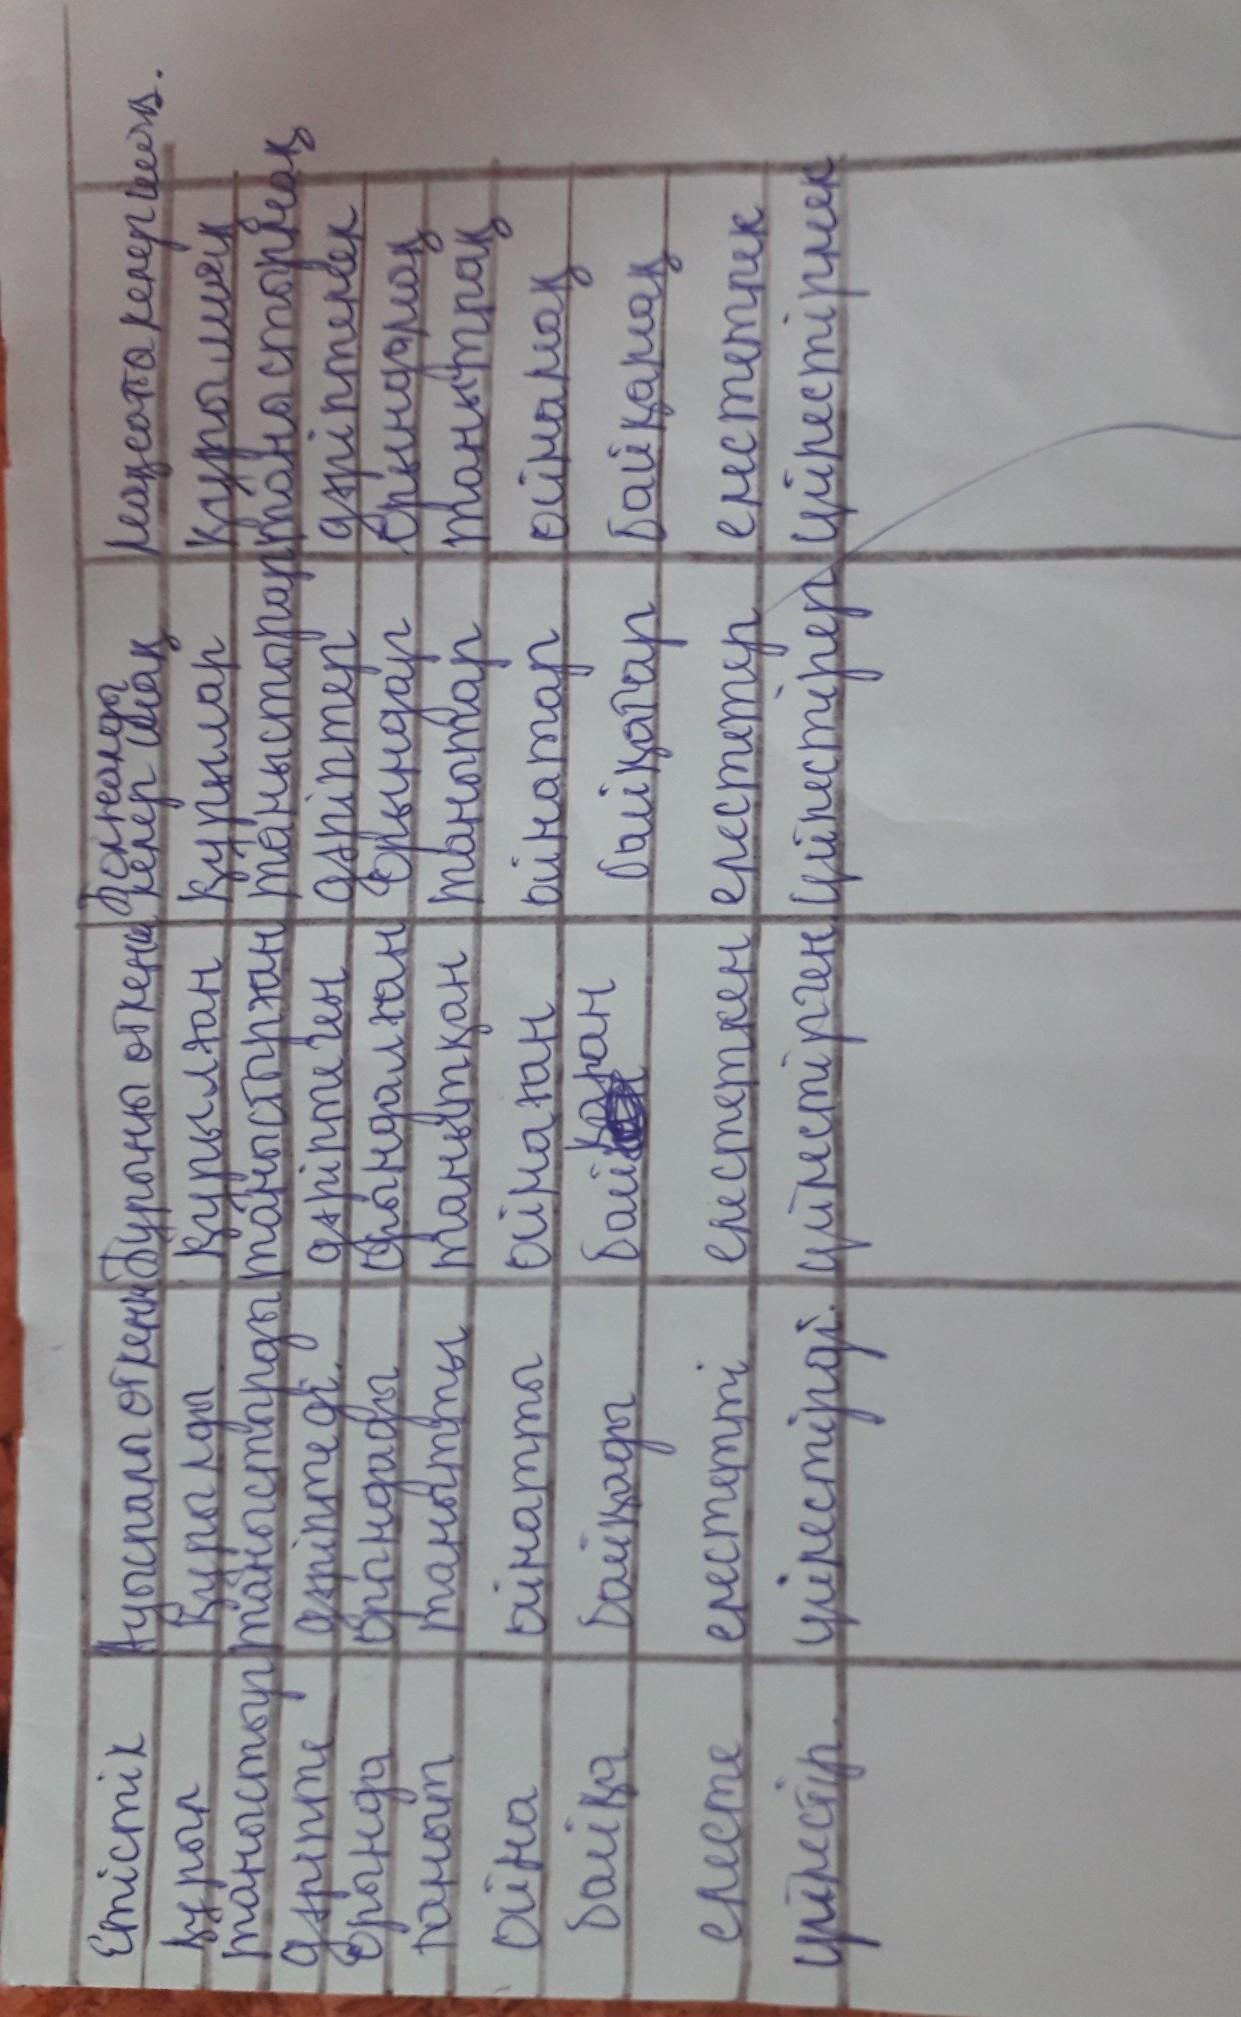 Етістік Ауыспалы өткен Бұрынғы өткен Болжалды келер шақ мақсатты келер шақ.
құрыл құрылды құрылған құрылар құрылмақ
таныстыр таныстырды таныстырған таныстырар таныстырмақ
дәріпте дәріптеді. дәріптеген дәріптер дәріптемек
Орында орындады орындалған орындар орындамақ
таныт танытты танытқан танытар танытпақ
ойна ойнатты ойнаған ойнатар ойнамақ
байқа байқады байқаған байқатар байқамақ
елесте елестетті елестеткен елестетер елестетпек
үйрестір. үйрестірді. үйлестірген үйрестірер үйрестірмек